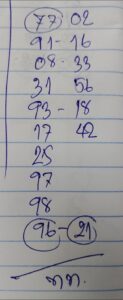 77 02
91 - 16
08 - 33
31 56
93 - 18
17 42
25
97
98
96 - 21